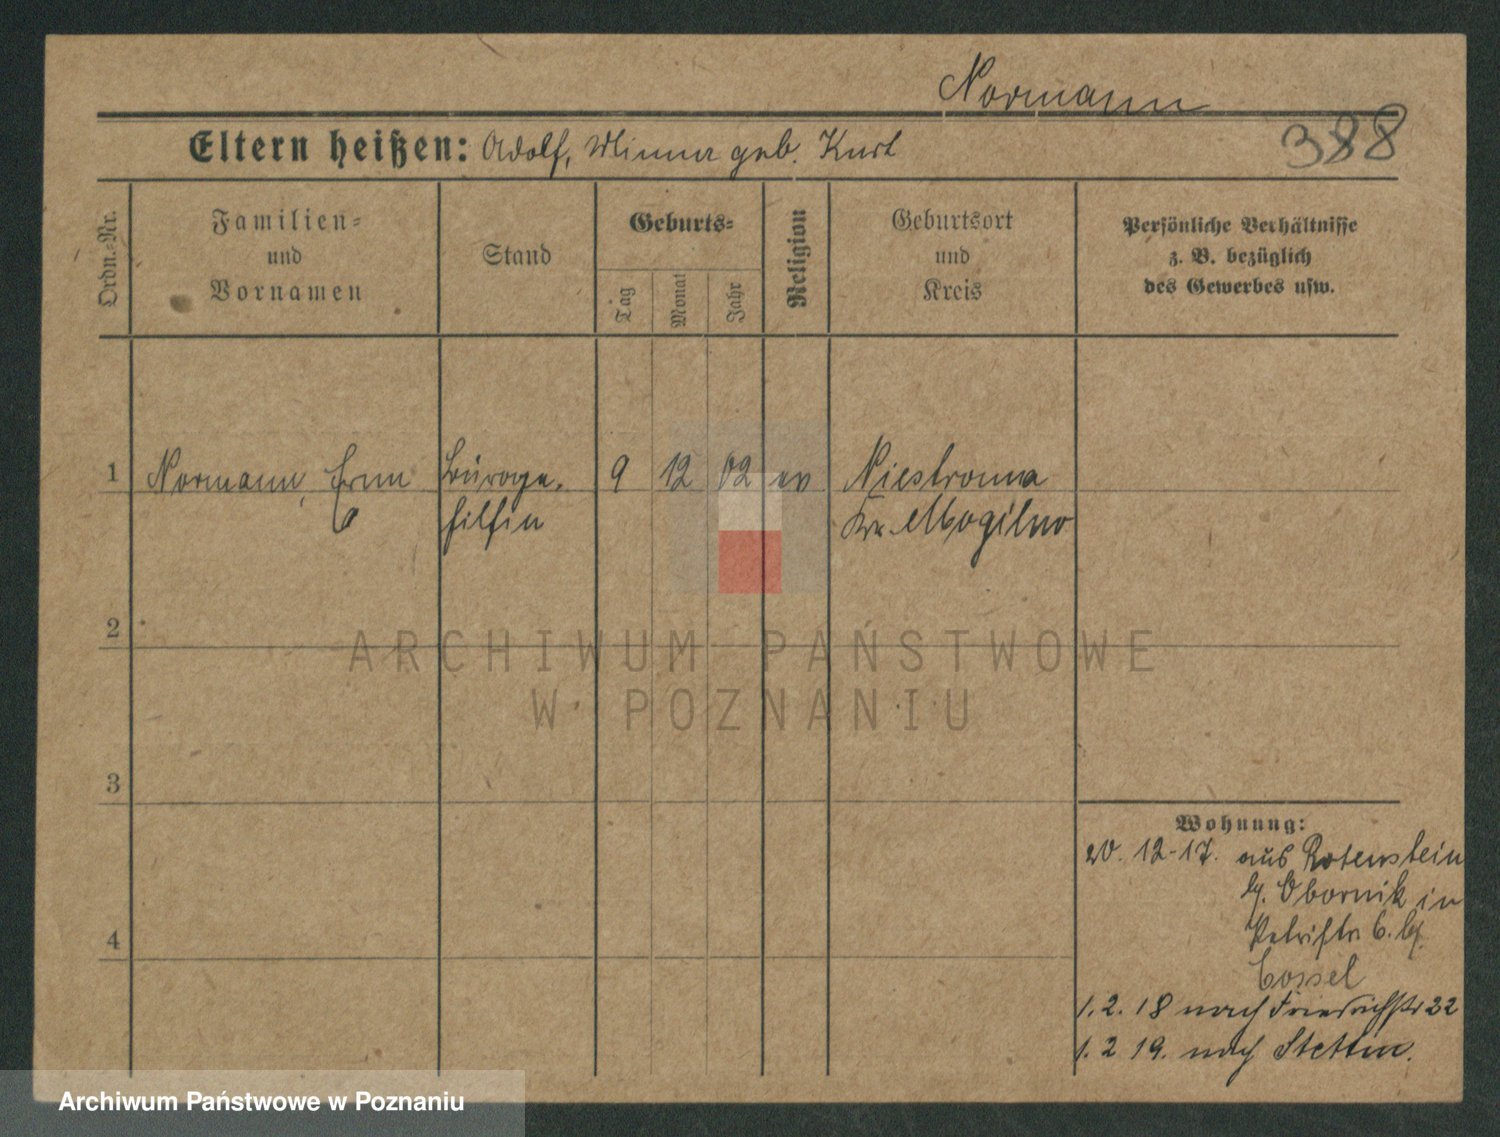 Normann
Eltern heißen: Adolf, Minna geb. Kurt
388
Ordn.-Nr.
Familien-
und
Vornamen
Stand
Geburts-
Tag
Monat
Jahr
Religion
Geburtsort
und
Kreis
Persönliche Verhältnisse
z. B. bezüglich
des Gewerbes usw.
1 Normann, Erna Büroge- 9 12 02 ev Niestronna
hilfin Kr. Mogilno
2
ARCHIWUM PAŃSTWOWE
W POZNANIU
3
Wohnung:
20. 12-17. aus Rotenstein
4
Obornik in
Petristr 6. bei
Cossel
1. 2. 18 nach Friedrichstr 22
1. 2 19. nach Stettin.
Archiwum Państwowe w Poznaniu